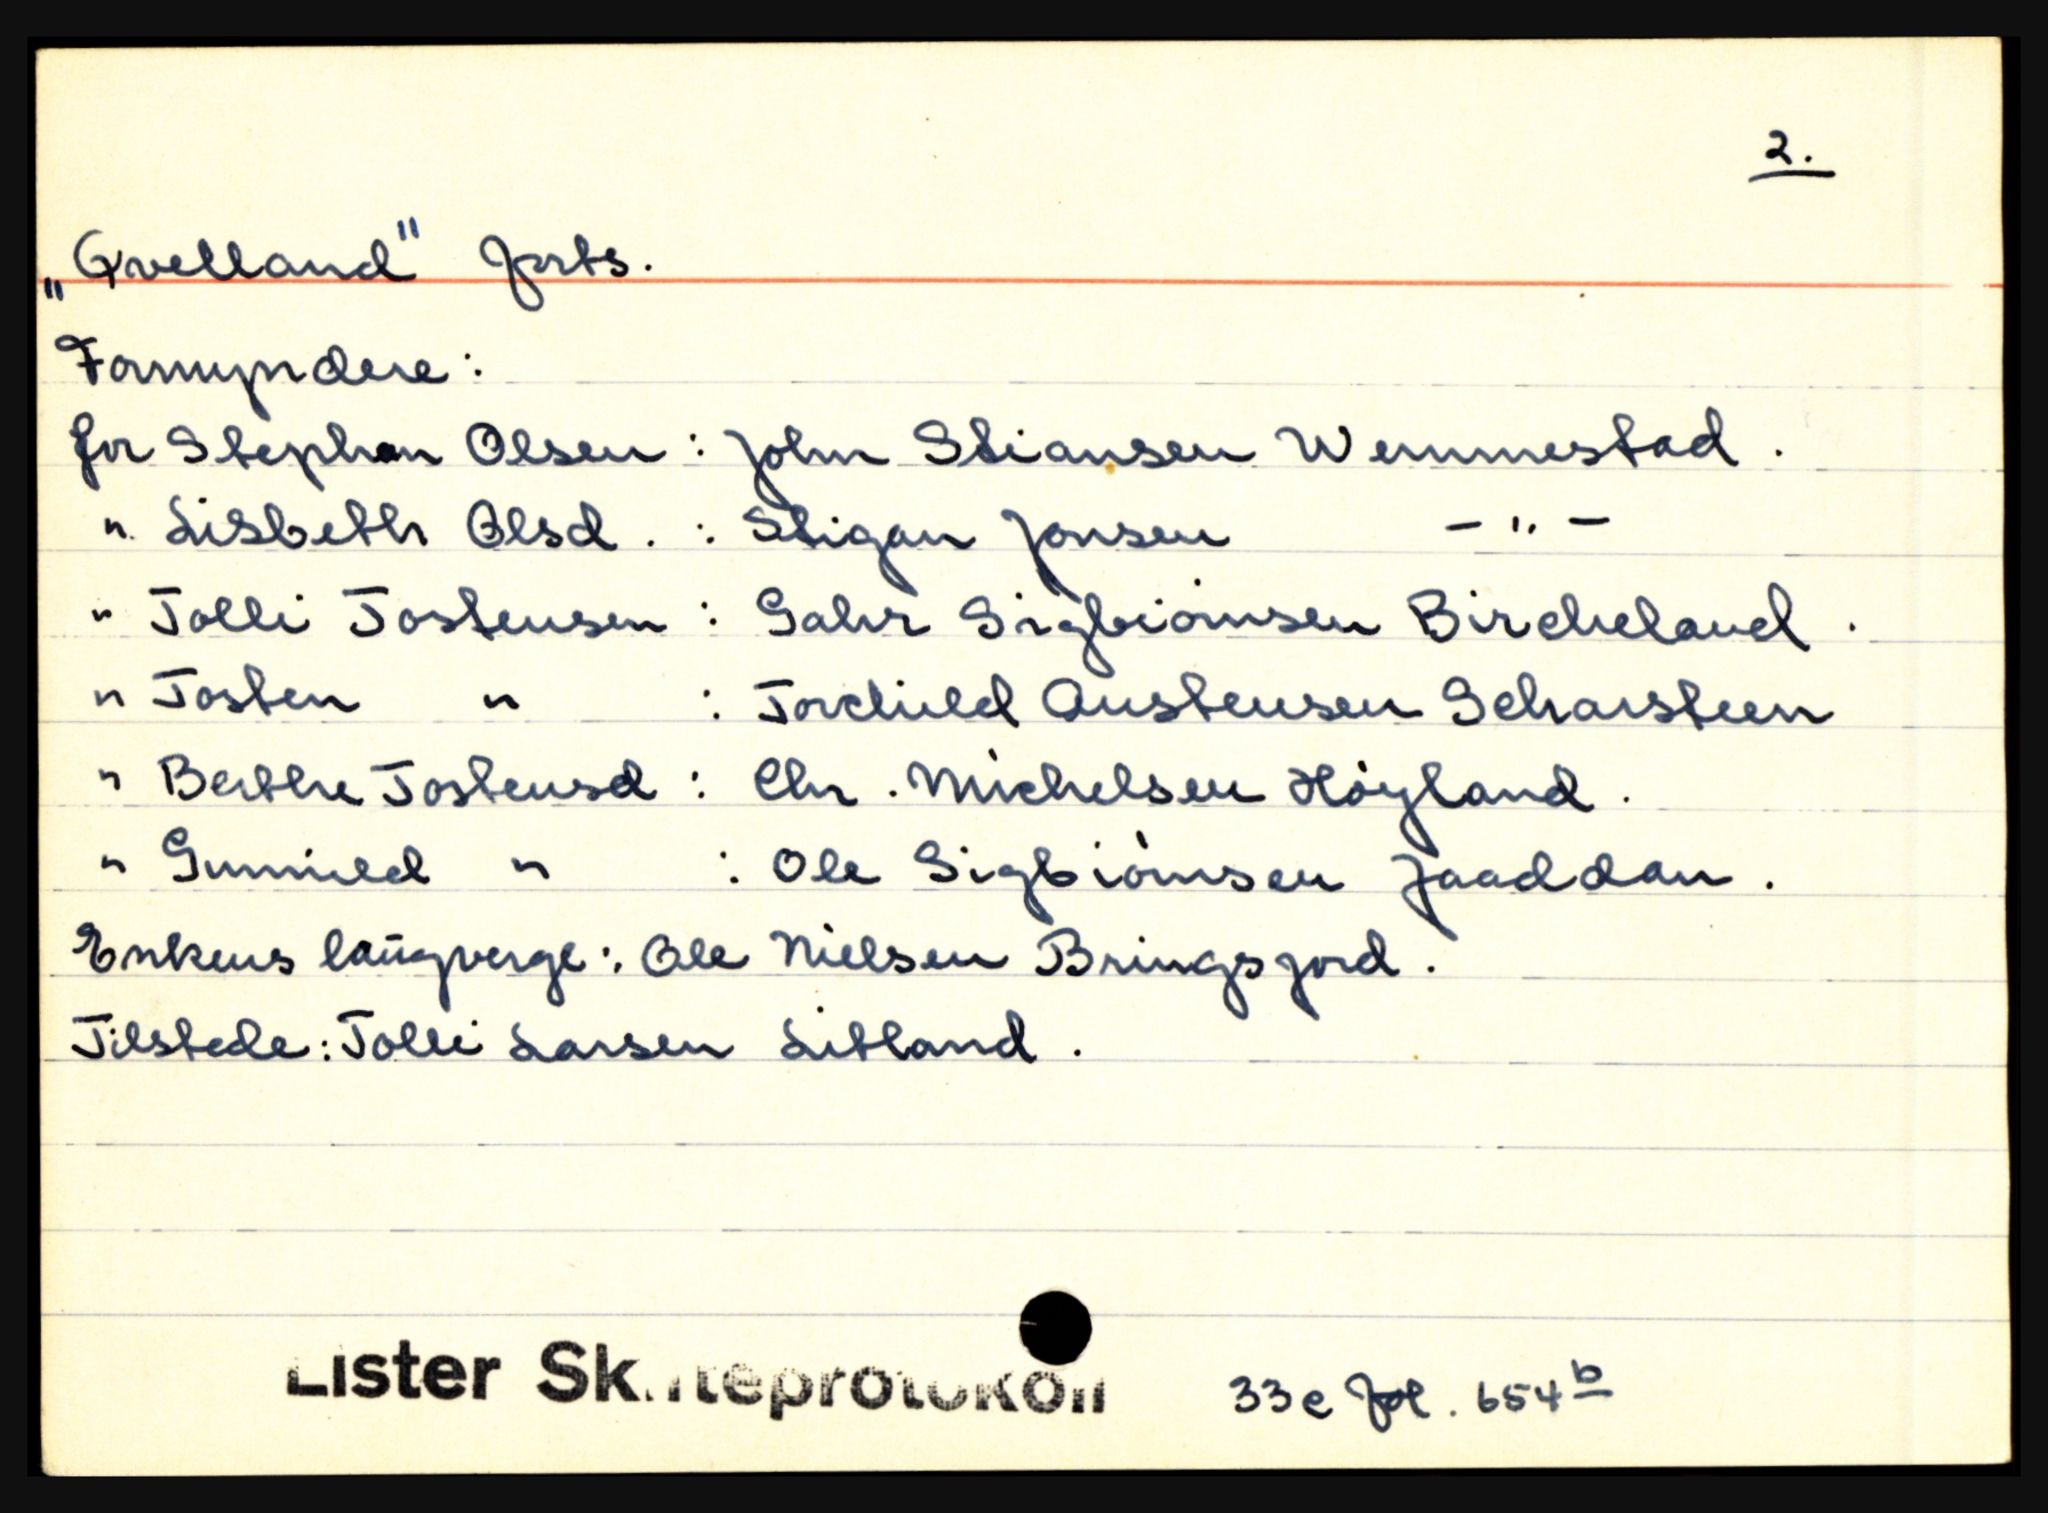 2.
„Qvelland" forts.
Formyndere:
for Stephan Olsen : John Stiansen Wemmestad.
" Lisbeth Olsd. : Stigan Jonsen — " —
" Tolli Tostensen : Gahr Sigbiørnsen Bircheland.
" Tosten " : Torchild Austensen Scharsteen
" Berthe Tostensd : Chr. Michelsen Høyland.
" Gunnild " : Ole Sigbiørnsen Jaaddan.
Enkens laugverge: Ole Nielsen Bringsjord.
Tilstede: Tolli Larsen Litland.
Lister Skifteprotokoll 33c fol. 654b